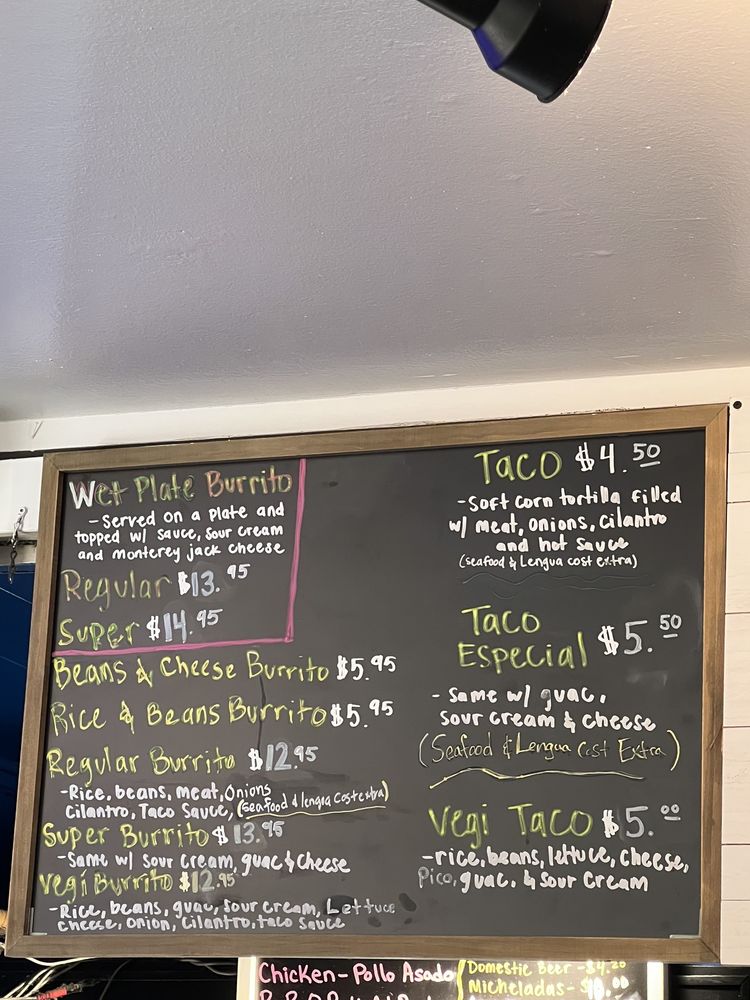 Wet Plate Burrito
- Served on a plate and
topped w/ sauce, sour cream
and monterey jack cheese
Regular $13.95
Super $14.95
Beans & Cheese Burrito $5.95
Rice & Beans Burrito $5.95
Regular Burrito $12.95
- Rice, beans, meat, Onions
Cilantro, Taco Sauce, (Seafood & lengua cost extra)
Super Burrito $13.95
- Same w/ sour cream, guac & cheese
Vegi Burrito $12.95
- Rice, beans, guac, sour cream, Lettuce
cheese, onion, cilantro, taco sauce
Taco $4.50
- Soft corn tortilla filled
w/ meat, onions, cilantro
and hot sauce
(seafood & Lengua cost extra)
Taco
Especial $5.50
- Same w/ guac,
sour cream & cheese
(Seafood & Lengua Cost Extra)
Vegi Taco $5.00
- rice, beans, lettuce, cheese,
Pico, guac, & sour cream
Chicken - Pollo Asado
Domestic Beer -
Micheladas -